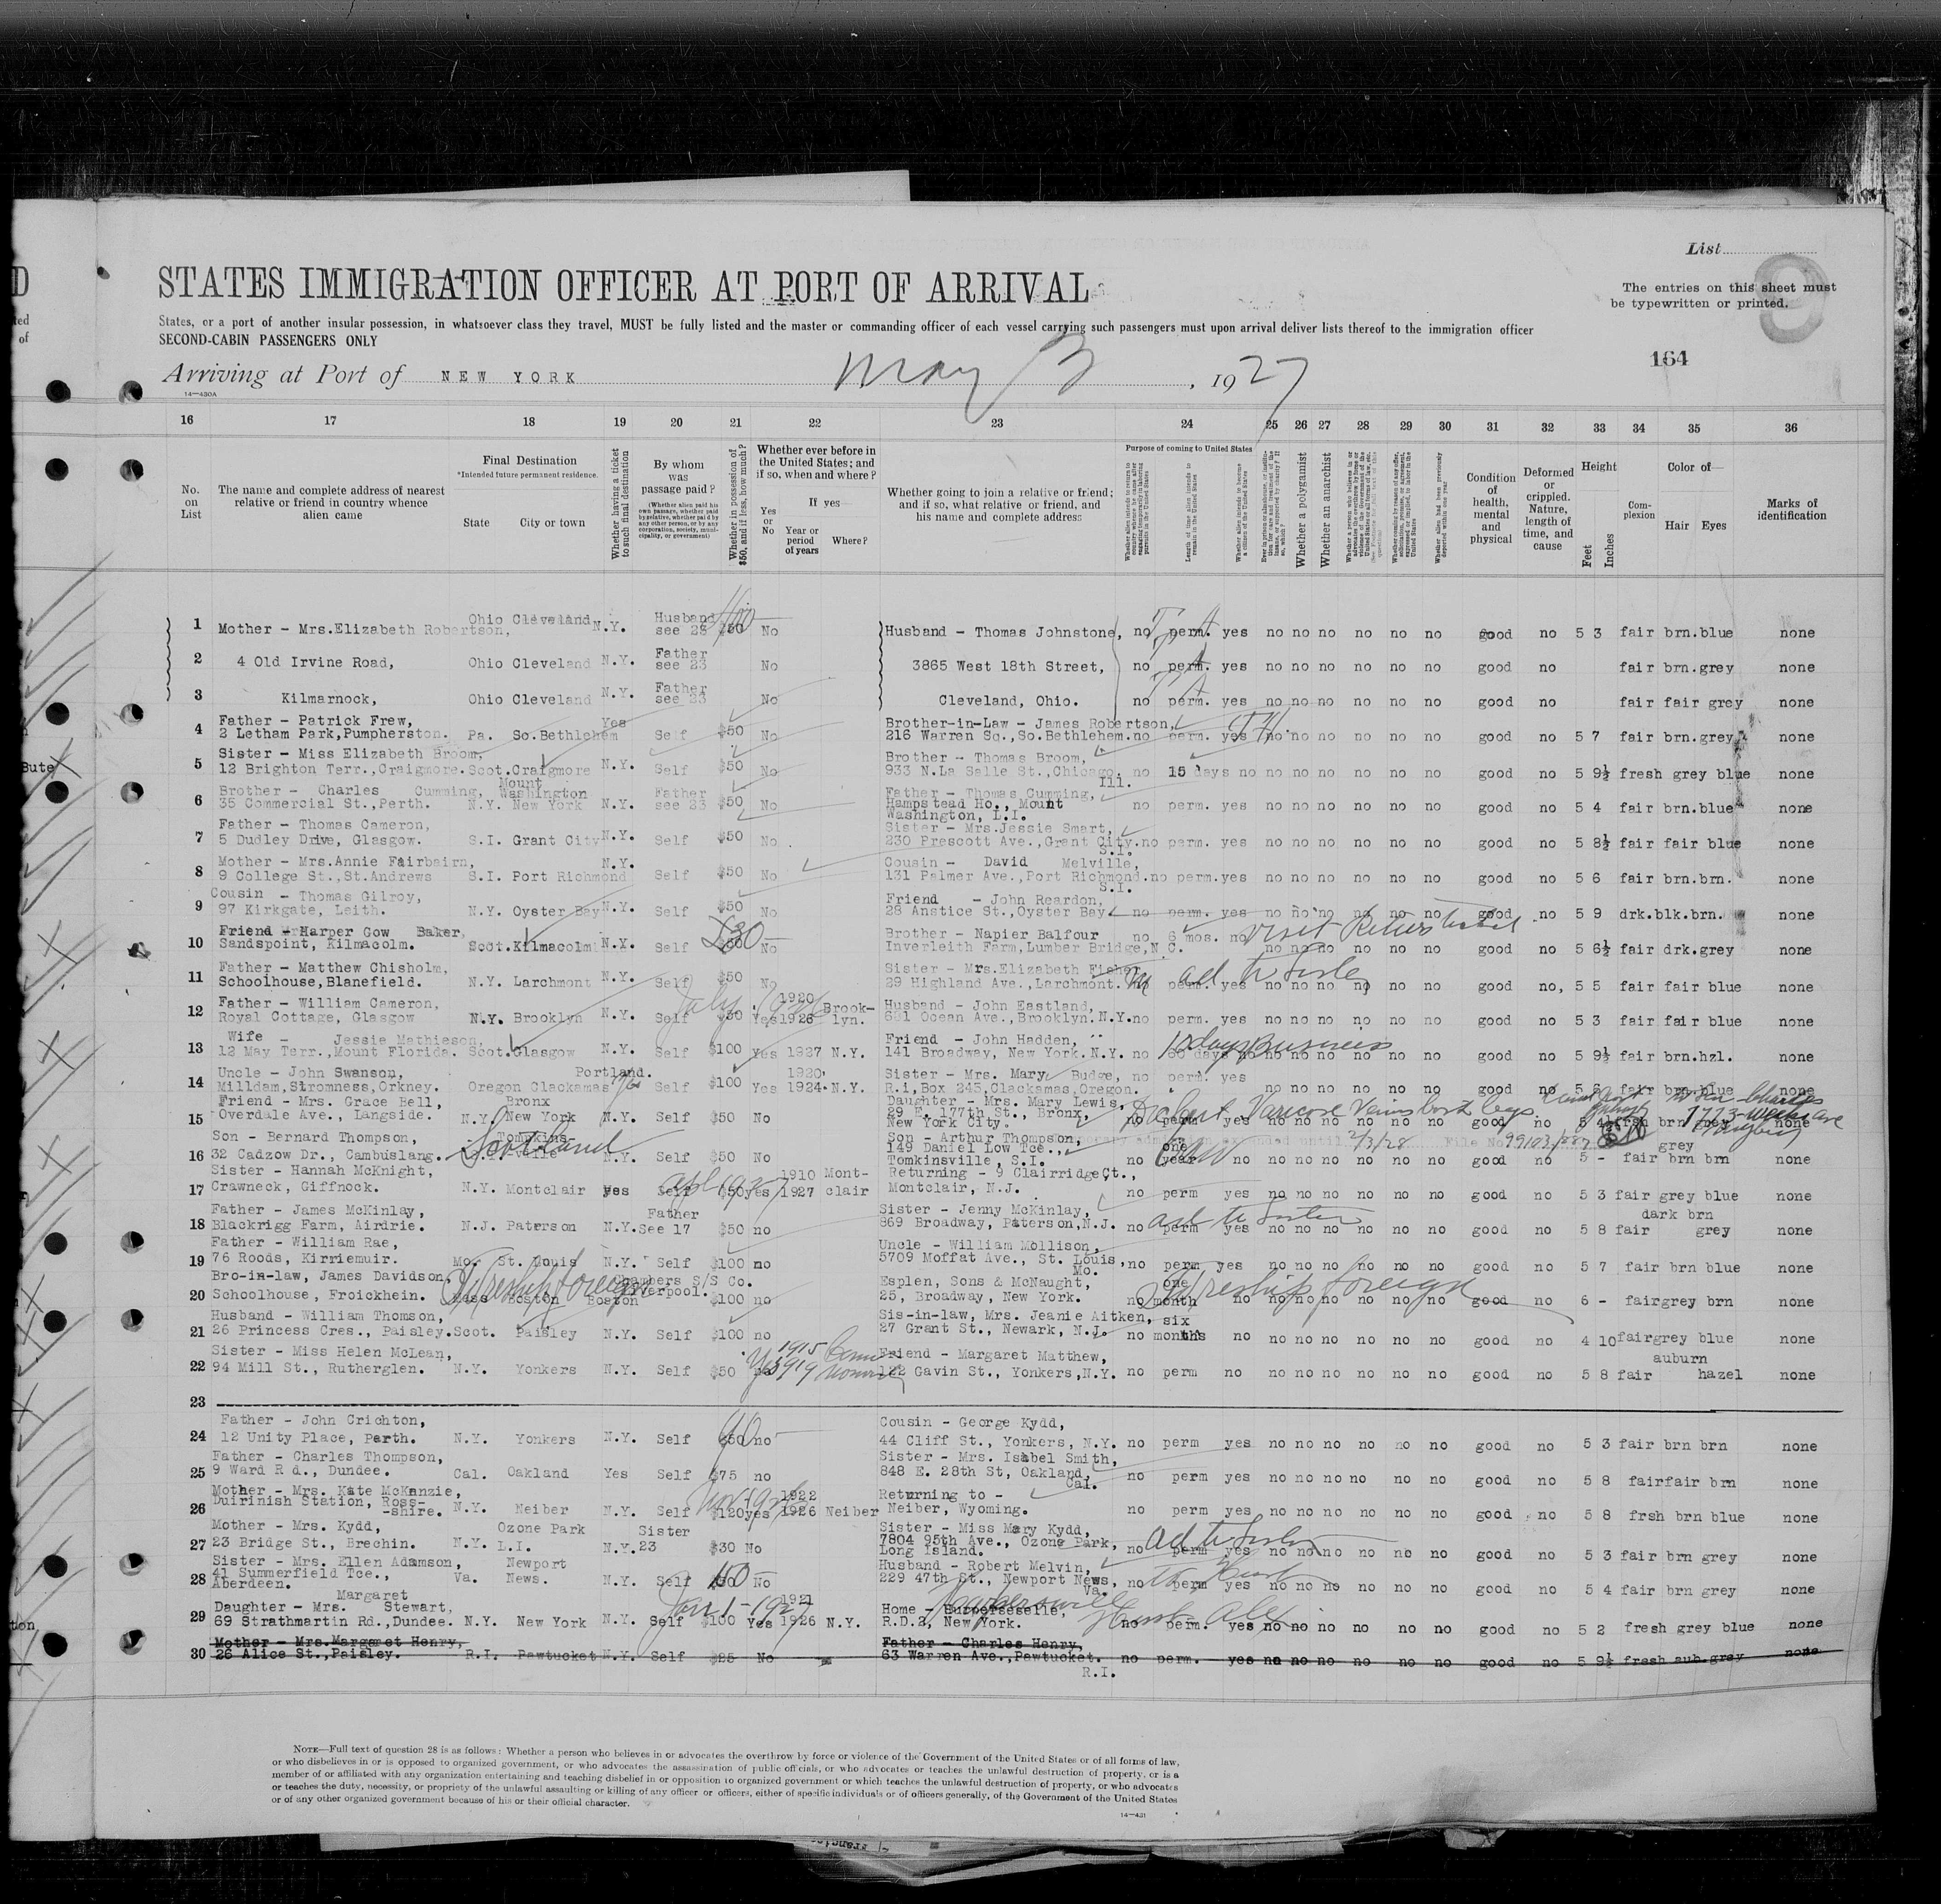 List
9
STATES IMMIGRATION OFFICER AT PORT OF ARRIVAL
The entries on this sheet must
be typewritten or printed.
States, or a port of another insular possession, in whatsoever class they travel, MUST be fully listed and the master or commanding officer of each vessel carrying such passengers must upon arrival deliver lists thereof to the immigration officer
SECOND-CABIN PASSENGERS ONLY
164
Arriving at Port of NEW YORK May 2, 1927
14—430A
16 17 18 19 20 21 22 23 24 25 26 27 28 29 30 31 32 33 34 35 36
No. on List
The name and complete address of nearest relative or friend in country whence alien came
Final Destination
*Intended future permanent residence.
State City or town
Whether having a ticket to such final destination
By whom was passage paid?
(Whether alien paid his own passage, whether paid by relative, whether paid by any other person, or by any corporation, society, municipality, or government)
Whether in possession of $50, and if less, how much?
Whether ever before in the United States; and if so, when and where?
Yes or No
If yes—
Year or period of years
Where?
Whether going to join a relative or friend; and if so, what relative or friend, and his name and complete address
Purpose of coming to United States
Length of time alien intends to remain in the United States
Whether alien intends to become a citizen of the United States
Whether a polygamist
Whether an anarchist
Whether alien had been previously deported within one year
Condition of health, mental and physical
Deformed or crippled. Nature, length of time, and cause
Height
Feet Inches
Complexion
Color of—
Hair Eyes
Marks of identification
1 Mother - Mrs.Elizabeth Robertson, Ohio Cleveland N.Y. Husband see 23 $50 No Husband - Thomas Johnstone, no perm. yes no no no no no no good no 5 3 fair brn.blue none
2 4 Old Irvine Road, Ohio Cleveland N.Y. Father see 23 No 3865 West 18th Street, no perm. yes no no no no no no good no fair brn.grey none
3 Kilmarnock, Ohio Cleveland N.Y. Father see 23 No Cleveland, Ohio. no perm. yes no no no no no no good no fair fair grey none
4 Father - Patrick Frew, 2 Letham Park,Pumpherston. Pa. So.Bethlehem Yes Self $50 No Brother-in-Law - James Robertson, 216 Warren Sq.,So.Bethlehem. no perm. yes no no no no no no good no 5 7 fair brn.grey none
5 Sister - Miss Elizabeth Broom, 12 Brighton Terr.,Craigmore. Scot.Craigmore N.Y. Self $50 No Brother - Thomas Broom, 933 N.La Salle St.,Chicago, Ill. no 15 days no no no no no no no good no 5 9½ fresh grey blue none
6 Brother - Charles Cumming, 35 Commercial St.,Perth. N.Y. Mount Washington New York N.Y. Father see 23 $50 No Father - Thomas Cumming, Hampstead Ho., Mount Washington, L.I. no perm. yes no no no no no no good no 5 4 fair brn.blue none
7 Father - Thomas Cameron, 5 Dudley Drive, Glasgow. S.I. Grant City N.Y. Self $50 No. Sister - Mrs.Jessie Smart, 230 Prescott Ave.,Grant City. S.I. no perm. yes no no no no no no good no 5 8½ fair fair blue none
8 Mother - Mrs.Annie Fairbairn, 9 College St.,St.Andrews S.I. Port Richmond N.Y. Self $50 No Cousin - David Melville, 131 Palmer Ave.,Port Richmond. S.I. no perm.yes no no no no no no good no 5 6 fair brn.brn. none
9 Cousin - Thomas Gilroy, 97 Kirkgate, Leith. N.Y. Oyster Bay N.Y. Self $50 No Friend - John Reardon, 28 Anstice St.,Oyster Bay. no perm. yes no no no no no no good no 5 9 drk.blk.brn. none
10 Friend - Harper Gow Baker, Sandspoint, Kilmacolm. Scot.Kilmacolm N.Y. Self £30 No Brother - Napier Balfour Inverleith Farm,Lumber Bridge,N.C. no 6 mos. no visit Return ticket no no no no no no good no 5 6½ fair drk.grey none
11 Father - Matthew Chisholm, Schoolhouse,Blanefield. N.Y. Larchmont N.Y. Self $50 No Sister - Mrs.Elizabeth Fisher 29 Highland Ave.,Larchmont. no perm. yes ad to Sister no no no no no no good no, 5 5 fair fair blue none
12 Father - William Cameron, Royal Cottage, Glasgow N.Y. Brooklyn N.Y. Self $50 July 1926 Yes 1920 1926 Brooklyn. Husband - John Eastland, 681 Ocean Ave.,Brooklyn.N.Y. no perm. yes no no no no no no good no 5 3 fair fair blue none
13 Wife - Jessie Mathieson, 12 May Terr.,Mount Florida. Scot.Glasgow N.Y. Self $100 Yes 1927 N.Y. Friend - John Hadden, 141 Broadway, New York.N.Y. no 60 days 10 days Business no no no no no no no good no 5 9½ fair brn.hzl. none
14 Uncle - John Swanson, Milldam,Stromness,Orkney. Oregon Portland. Clackamas Self $100 Yes 1920 1924 N.Y. Sister - Mrs. Mary Budge, R.1,Box 245,Clackamas,Oregon. no perm. yes no no no no no no good no 5 6 fair brn blue none
15 Friend - Mrs. Grace Bell, Overdale Ave., Langside. N.Y. Bronx New York N.Y. Self $50 No Daughter - Mrs. Mary Lewis, 29 E. 177th St., Bronx, New York City. Varicose Veins both legs. no perm yes no no no no no no good no frsh brn grey none
16 Son - Bernard Thompson, 32 Cadzow Dr., Cambuslang. Scotland Tompkinsville N.Y. Self $50 No Son - Arthur Thompson, 149 Daniel Low Tce., Tomkinsville, S.I. no one year no no no no no no no good no 5 - fair grey brn brn none
2/3/28 File No 99103/287
17 Sister - Hannah McKnight, Crawneck, Giffnock. N.Y. Montclair Yes Self $50 yes 1910 1927 Montclair Returning - 9 Clairridge Ct., Montclair, N.J. no perm yes no no no no no no good no 5 3 fair grey blue none
18 Father - James McKinlay, Blackrigg Farm, Airdrie. N.J. Paterson N.Y. Father See 17 $50 no Sister - Jenny McKinlay, 869 Broadway, Paterson,N.J. no perm yes ad to Sister no no no no no no good no 5 8 fair dark brn grey none
19 Father - William Rae, 76 Roods, Kirriemuir. Mo. St. Louis N.Y. Self $100 no Uncle - William Mollison, 5709 Moffat Ave., St. Louis, Mo. no perm yes no no no no no no good no 5 7 fair brn blue none
20 Bro-in-law, James Davidson, Schoolhouse, Froickhein. Reship foreign Mass Boston Boston Chambers S/S Co. Liverpool. $100 no Esplen, Sons & McNaught, 25, Broadway, New York. no one month no Reship foreign no no no no no no good no 6 - fair grey brn none
21 Husband - William Thomson, 26 Princess Cres., Paisley. Scot. Paisley N.Y. Self $100 no Sis-in-law, Mrs. Jeanie Aitken, 27 Grant St., Newark, N.J. no six months no no no no no no no good no 4 10 fair grey blue none
22 Sister - Miss Helen McLean, 94 Mill St., Rutherglen. N.Y. Yonkers N.Y. Self $50 Yes 1915 1919 Friend - Margaret Matthew, 122 Gavin St., Yonkers,N.Y. no perm no no no no no no no good no 5 8 fair auburn hazel none
23
24 Father - John Crichton, 12 Unity Place, Perth. N.Y. Yonkers N.Y. Self $50 no Cousin - George Kydd, 44 Cliff St., Yonkers, N.Y. no perm yes no no no no no no good no 5 3 fair brn brn none
25 Father - Charles Thompson, 9 Ward R d., Dundee. Cal. Oakland Yes Self $75 no Sister - Mrs. Isabel Smith, 848 E. 28th St, Oakland, Cal. no perm yes no no no no no no good no 5 8 fair fair brn none
26 Mother - Mrs. Kate McKenzie, Duirinish Station, Ross-shire. N.Y. Neiber N.Y. Self $120 yes 1922 1926 Neiber Returning to - Neiber, Wyoming. no perm yes no no no no no no good no 5 8 frsh brn blue none
27 Mother - Mrs. Kydd, 23 Bridge St., Brechin. N.Y. Ozone Park L.I. N.Y. Sister 23 $30 No Sister - Miss Mary Kydd, 7804 95th Ave., Ozone Park, Long Island. no perm yes ad to Sister no no no no no no good no 5 3 fair brn grey none
28 Sister - Mrs. Ellen Adamson, 41 Summerfield Tce., Aberdeen. Va. Newport News. N.Y. Self No Husband - Robert Melvin, 229 47th St., Newport News, Va. no perm yes no no no no no no good no 5 4 fair brn grey none
29 Daughter - Mrs. Margaret Stewart, 69 Strathmartin Rd.,Dundee. N.Y. New York N.Y. Self $100 Yes 1921 1926 N.Y. Home - R.D.2, New York. no perm. yes no no no no no no good no 5 2 fresh grey blue none
30 Mother - Mrs.Margaret Henry, 26 Alice St.,Paisley. R.I. Pawtucket N.Y. Self $25 No Father - Charles Henry, 63 Warren Ave.,Pawtucket. R.I. no perm. yes no no no no no no good no 5 9½ fresh aub.grey none
NOTE—Full text of question 28 is as follows: Whether a person who believes in or advocates the overthrow by force or violence of the Government of the United States or of all forms of law,
or who disbelieves in or is opposed to organized government, or who advocates the assassination of public officials, or who advocates or teaches the unlawful destruction of property, or is a
member of or affiliated with any organization entertaining and teaching disbelief in or opposition to organized government or which teaches the unlawful destruction of property, or who advocates
or teaches the duty, necessity, or propriety of the unlawful assaulting or killing of any officer or officers, either of specific individuals or of officers generally, of the Government of the United States
or of any other organized government because of his or their official character.
14—431